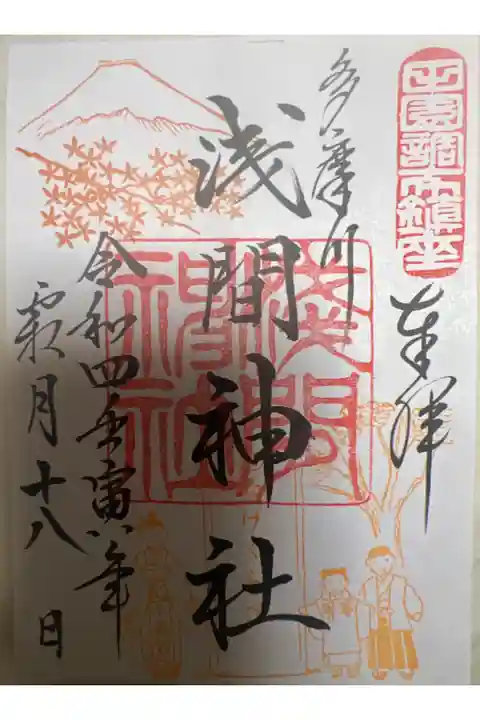 田園調布鎮座
奉拝
多摩川
浅間神社
浅間神社
令和四壬寅年
霜月十八日